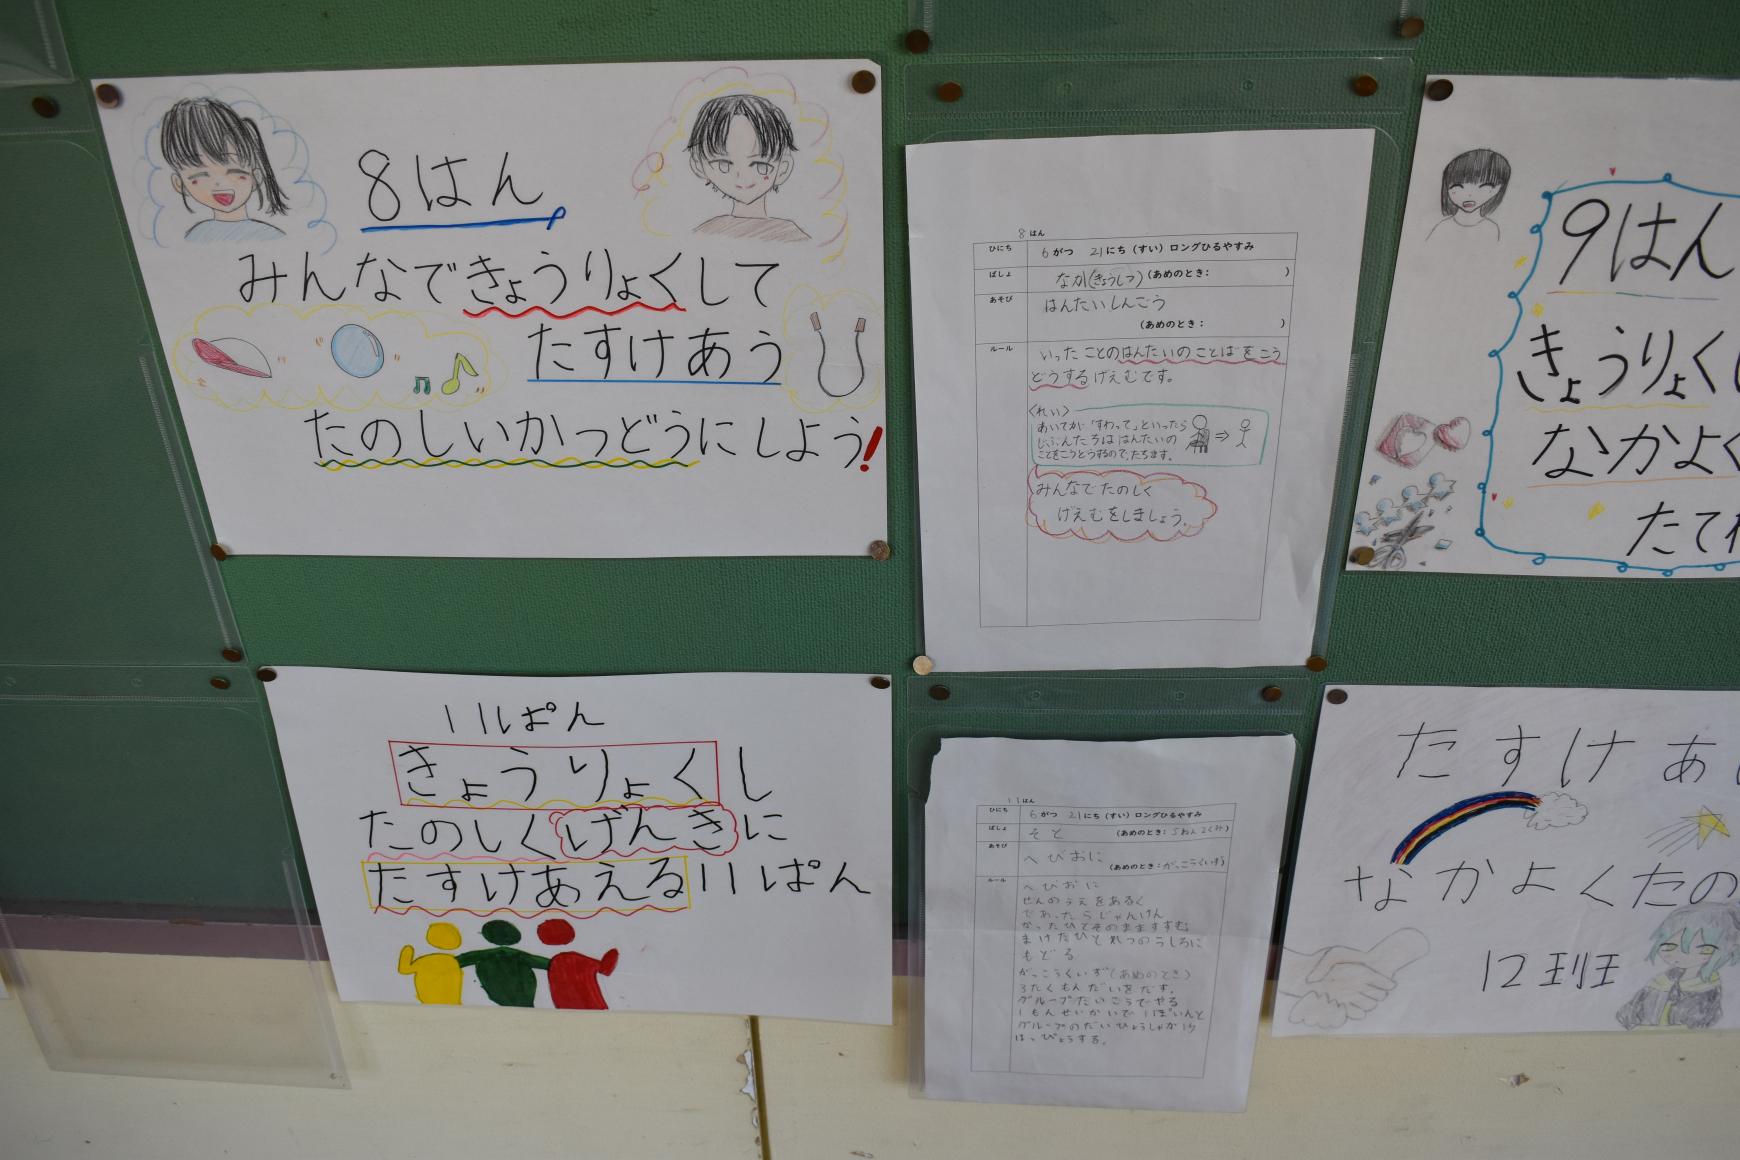 8はん
みんなできょうりょくして
たすけあう
たのしいかつどうにしよう!
8はん
ひにち 6がつ 21にち(すい)ロングひるやすみ
ばしょ なか(きょうしつ)(あめのとき: )
あそび はんたいしんごう
(あめのとき: )
ルール いったことのはんたいのことばをこう
どうするげえむです。
〈れい〉
あいてが「すわって」といったら
じぶんたちははんたいの
ことをこうどうするので、たちます。
みんなでたのしく
げえむをしましょう。
9はん
きょうりょくし
なかよく
たてわ
11ぱん
きょうりょくし
たのしくげんきに
たすけあえる11ぱん
11はん
ひにち 6がつ 21にち(すい)ロングひるやすみ
ばしょ そと (あめのとき:5ねん2くみ)
あそび へびおに
(あめのとき:がっこうくいず)
ルール へびおに
せんのうえをあるく
であったらじゃんけん
かったひとそのまますすむ
まけたひとれつのうしろに
もどる
がっこうくいず(あめのとき)
3たくもんだいをだす。
グループたいこうでやる
1もんせいかいで1ぽいんと
グループのだいひょうしゃが
はっぴょうする。
たすけあい
なかよくたの
12班